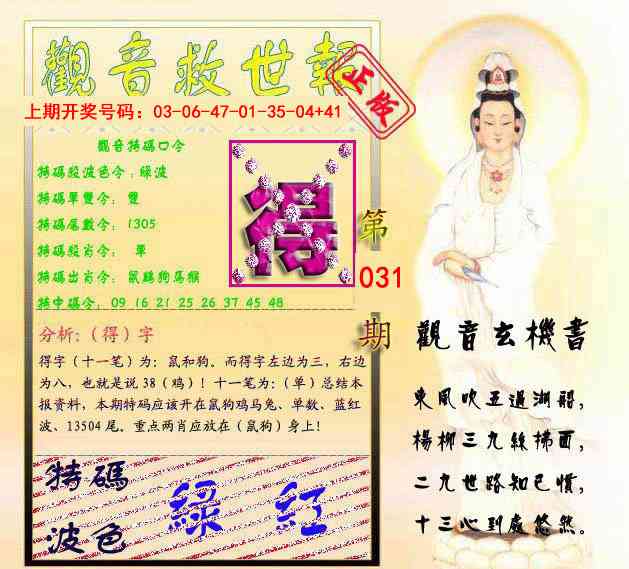 觀音救世報
正版
上期开奖号码：03-06-47-01-35-04+41
觀音特碼口令
特碼段波色令：綠波
特碼單雙令： 雙
特碼尾數令： 1305
特碼段肖令： 單
特碼出肖令： 鼠鷄狗馬猴
特中碼令： 09 16 21 25 26 37 45 48
得
第
031
期
分析：（得）字
得字（十一笔）为：鼠和狗。而得字左边为三，右边
为八，也就是说 38（鸡）！十一笔为：（单）总结本
报资料，本期特码应该开在鼠狗鸡马兔、单数、蓝红
波、13504 尾。重点两肖应放在（鼠狗）身上！
特碼
波色
綠 紅
觀音玄機書
東風吹五過湖
楊柳三九絲拂面，
二九世路知已慣，
十三心到處悠然。